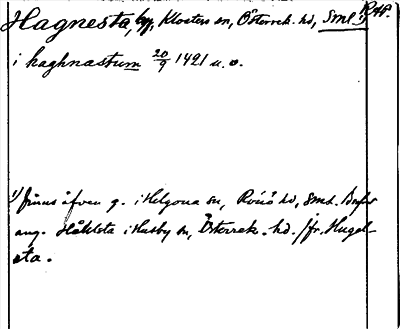 Hagnesta, by, Klosters sn, Österrek. hd, Sml. 1) RAP.
i haghnastum 20/9 1421 u. o.
1) finns äfven g. i Helgona sn, Rönö hd, Smt.
ang. Håklsta i Husby sn, Österrek. hd. / jfr. Hugel-
sta.